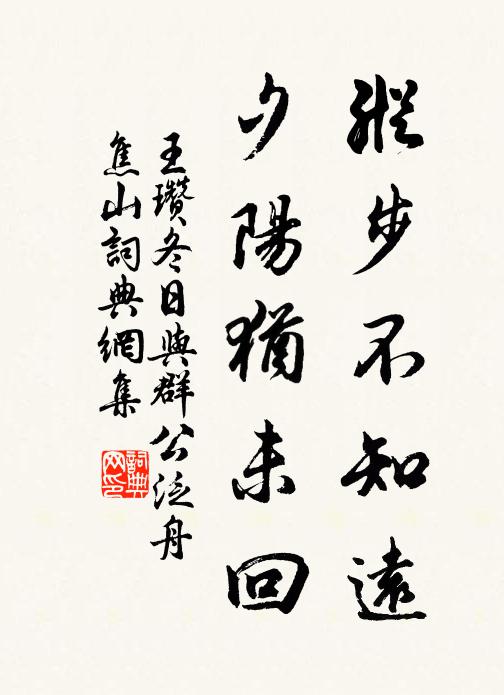 縱步不知遠
夕陽猶未回
王瓚冬日與群公泛舟
焦山詞典網集
詞典网印